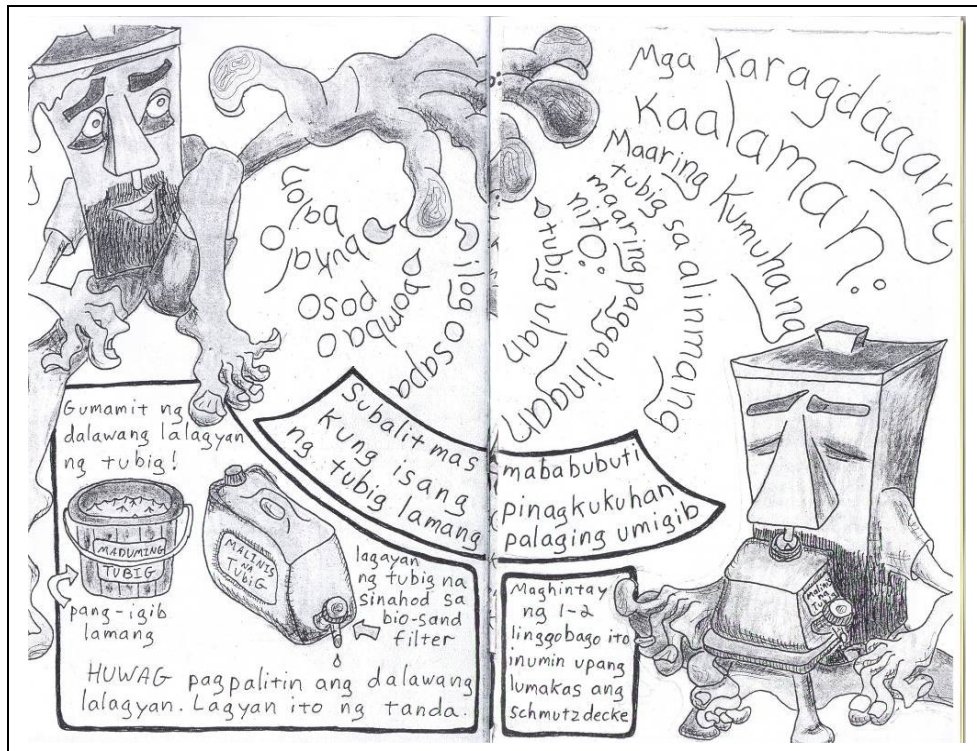 Mga Karagdagang
Kaalaman:
Maaring Kumuhang
tubig sa alinmang
maaring paggalingan
nito:
tubig ulan
ilog o sapa
bomba o
poso
bukal
balon
Subalit mas mababubuti
kung isang pinagkukuhan
ng tubig lamang palaging umigib
Gumamit ng
dalawang lalagyan
ng tubig!
MADUMING
TUBIG
pang-igib
lamang
MALINIS
NA
TUBIG
lagayan
ng tubig na
sinahod sa
bio-sand
filter
HUWAG pagpalitin ang dalawang
lalagyan. Lagyan ito ng tanda.
Maghintay
ng 1-2
linggobago ito
inumin upang
lumakas ang
schmutzdecke
Malinis
na
Tubig